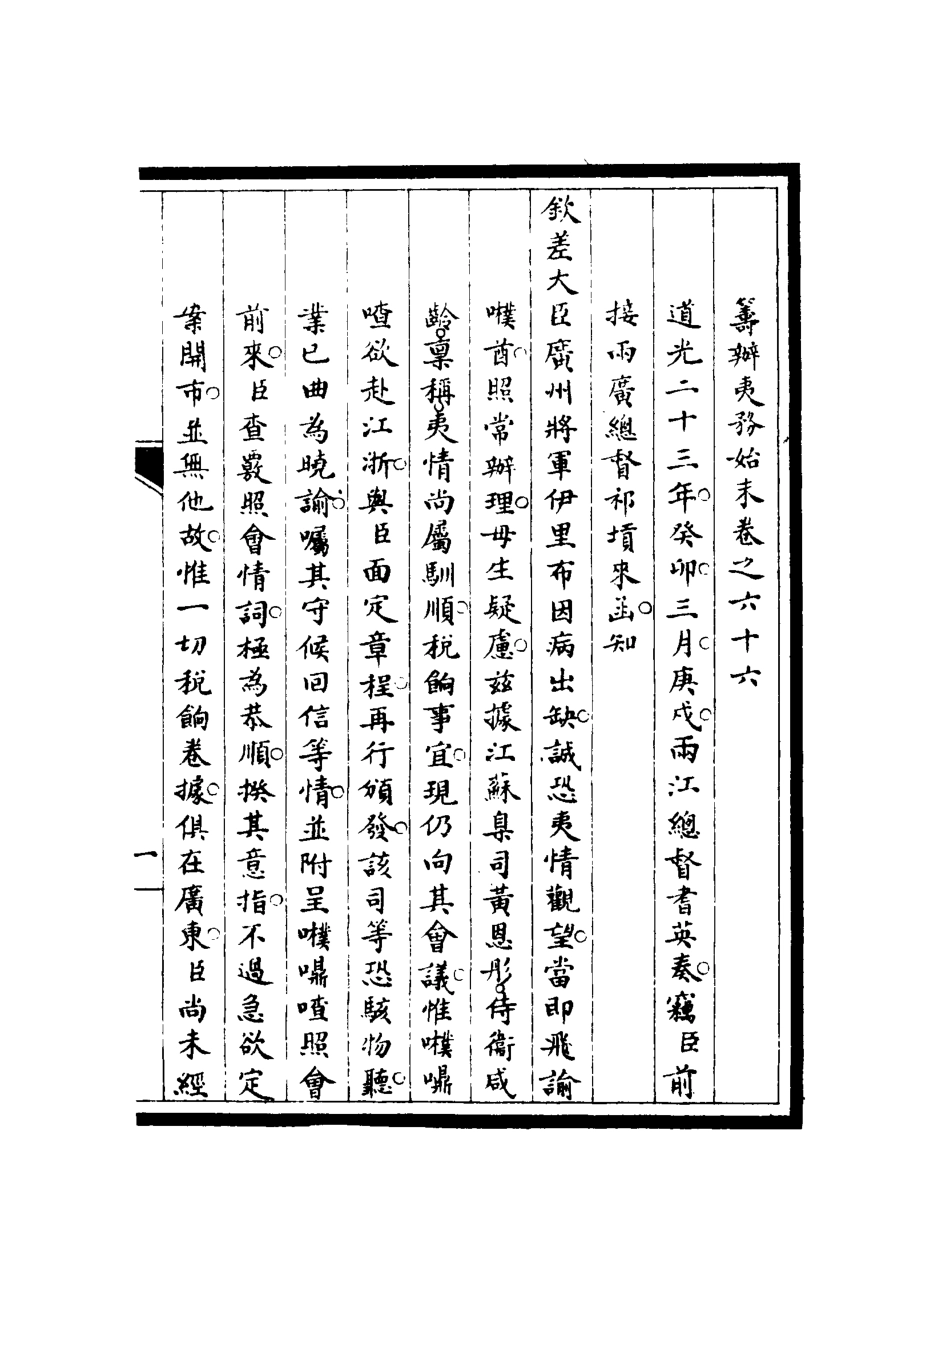 籌辦夷務始末卷之六十六
道光二十三年。癸卯。三月。庚戌。兩江總督耆英奏。竊臣前
接兩廣總督祁墳來函。知
欽差大臣廣州將軍伊里布因病出缺。誠恐夷情觀望。當即飛諭
噗酋。照常辦理。毋生疑慮。茲據江蘇臬司黃恩彤。侍衞咸
齡。稟稱。夷情尚屬馴順。稅餉事宜。現仍向其會議。惟噗嚊
喳欲赴江浙。與臣面定章程。再行頒發。該司等恐駭物聽。
業已曲為曉諭。囑其守候回信等情。並附呈噗嚊喳照會
前來。臣查覈照會情詞。極為恭順。揆其意指。不過急欲定
案開市。並無他故。惟一切稅餉卷據。俱在廣東。臣尚未經
一